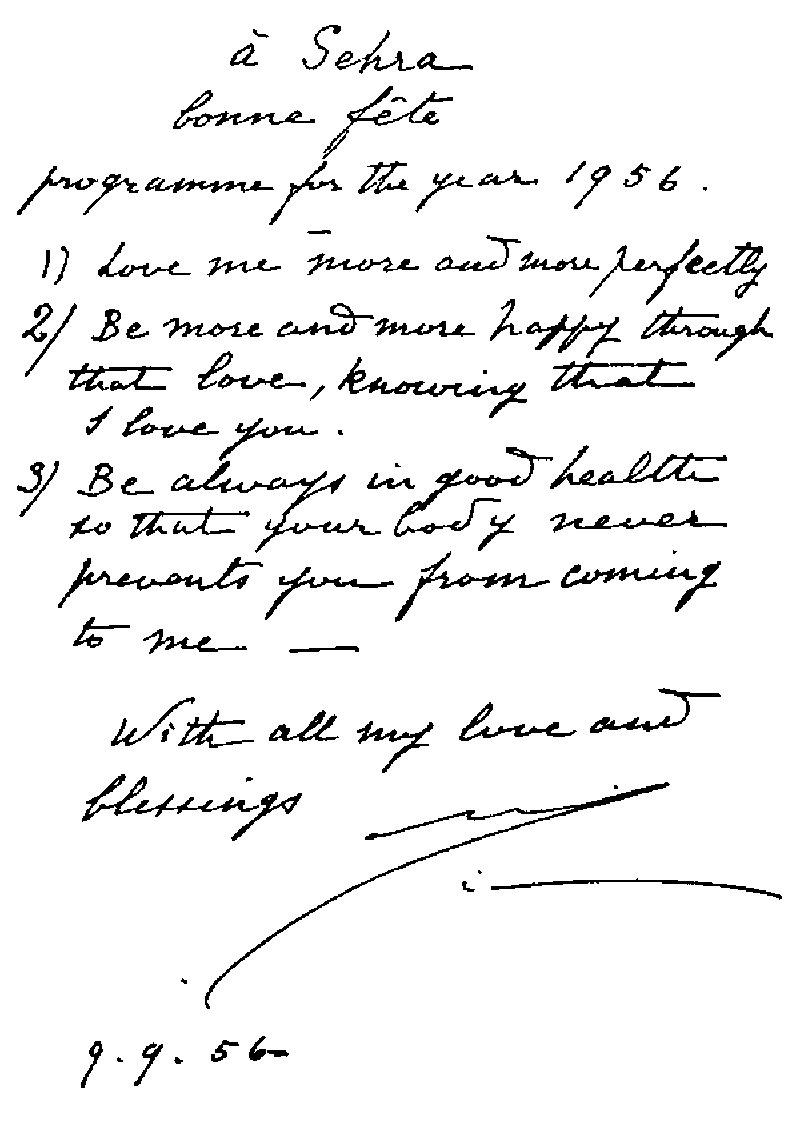 à Sehra
bonne fête
programme for the year 1956.
1) Love me more and more perfectly
2/ Be more and more happy through
that love, knowing that
I love you.
3/ Be always in good health
so that your body never
prevents you from coming
to me —
With all my love and
blessings
9.9.56-